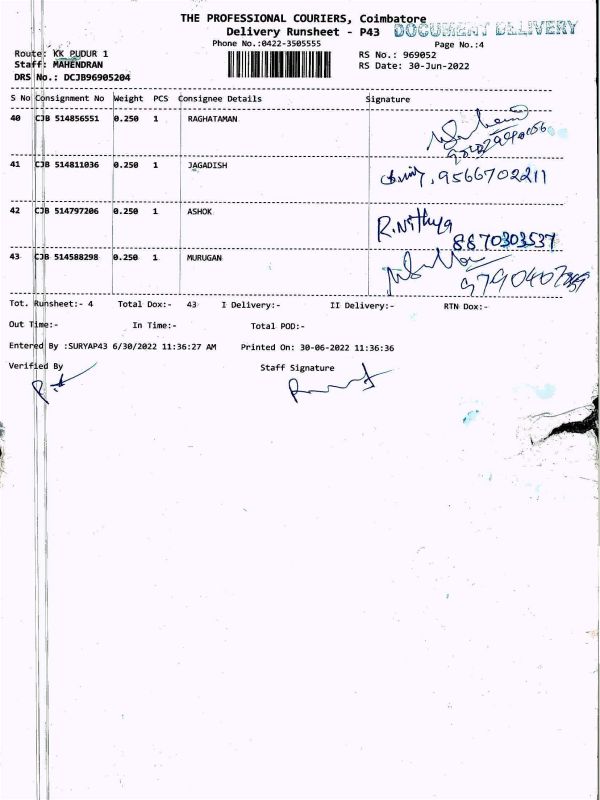 THE PROFESSIONAL COURIERS, Coimbatore
Delivery Runsheet - P43 DOCUMENT DELIVERY
Phone No.:0422-3505555 Page No.:4
Route: KK PUDUR 1 RS No.: 969052
Staff: MAHENDRAN RS Date: 30-Jun-2022
DRS No.: DCJB96905204
S No Consignment No Weight PCS Consignee Details Signature
40 CJB 514856551 0.250 1 RAGHATAMAN
41 CJB 514811036 0.250 1 JAGADISH
9566702211
42 CJB 514797206 0.250 1 ASHOK
R.Nithya
8870303537
43 CJB 514588298 0.250 1 MURUGAN
Tot. Runsheet:- 4 Total Dox:- 43 I Delivery:- II Delivery:- RTN Dox:-
Out Time:- In Time:- Total POD:-
Entered By :SURYAP43 6/30/2022 11:36:27 AM Printed On: 30-06-2022 11:36:36
Verified By Staff Signature